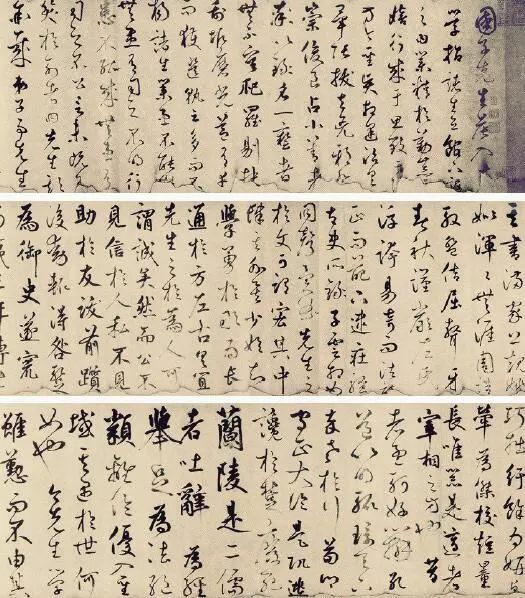 國子先生晨入太
學招諸生立館下誨
之曰業精於勤荒
嬉行成于思毀
方今聖賢相逢治具
畢張拔去兇邪
登崇俊良占小善者
率以錄名一藝者
無不庸爬羅剔抉
刮垢磨光蓋有幸
而獲選孰云多而不
揚諸生業患不能
無患有司之不明行
患不能成無患有
司之不公言未既有
笑於列者曰先生欺
余哉弟子事先生
姒渾渾無涯周誥
殷盤佶屈聱牙
春秋謹嚴左氏
浮誇易奇而法詩
正而葩下逮莊騷
太史所錄子雲相如
同工異曲先生之
於文可謂宏其中
肆其外矣少始知
學勇於敢為長
通於方左右具宜
先生之於為人可
謂誠矣然而公不
見信於人私不見
助於友跋前躓
後動輒得咎暫
為御史遂竄
三年博士
紆餘為妍卓
犖為傑校短量
長唯器是適者
宰相之方也昔
者孟軻好辯孔
道以明轍環天下
卒老於行荀卿
守正大論是弘逃
讒於楚廢死
蘭陵是二儒
者吐辭為經
舉足為法絕
類離倫優入聖
域其遇於世何
如也今先生學
雖懃而不由其